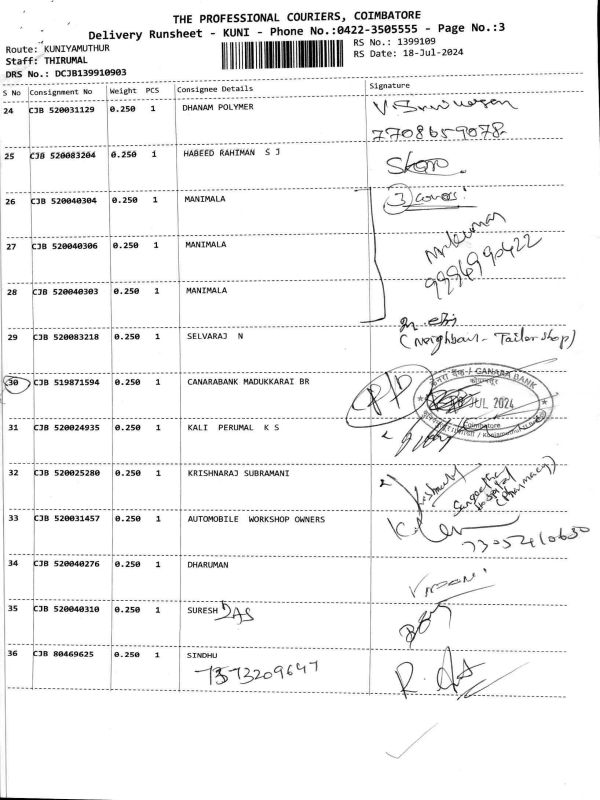 THE PROFESSIONAL COURIERS, COIMBATORE
Delivery Runsheet - KUNI - Phone No.:0422-3505555 - Page No.:3
Route: KUNIYAMUTHUR
RS No.: 1399109
Staff: THIRUMAL
RS Date: 18-Jul-2024
DRS No.: DCJB139910903
S No Consignment No Weight PCS Consignee Details Signature
24 CJB 520031129 0.250 1 DHANAM POLYMER
7708659078
25 CJB 520083204 0.250 1 HABEED RAHIMAN S J
26 CJB 520040304 0.250 1 MANIMALA 3 covers
27 CJB 520040306 0.250 1 MANIMALA
9994990422
28 CJB 520040303 0.250 1 MANIMALA
29 CJB 520083218 0.250 1 SELVARAJ N
(neighbour - Tailor shop)
30 CJB 519871594 0.250 1 CANARABANK MADUKKARAI BR
केनरा बैंक / CANARA BANK
JUL 2024
Coimbatore
31 CJB 520024935 0.250 1 KALI PERUMAL K S
32 CJB 520025280 0.250 1 KRISHNARAJ SUBRAMANI
Sangeetha
Hospital
(Pharmacy)
33 CJB 520031457 0.250 1 AUTOMOBILE WORKSHOP OWNERS
7305210630
34 CJB 520040276 0.250 1 DHARUMAN
35 CJB 520040310 0.250 1 SURESH DAS
36 CJB 80469625 0.250 1 SINDHU
7373209647